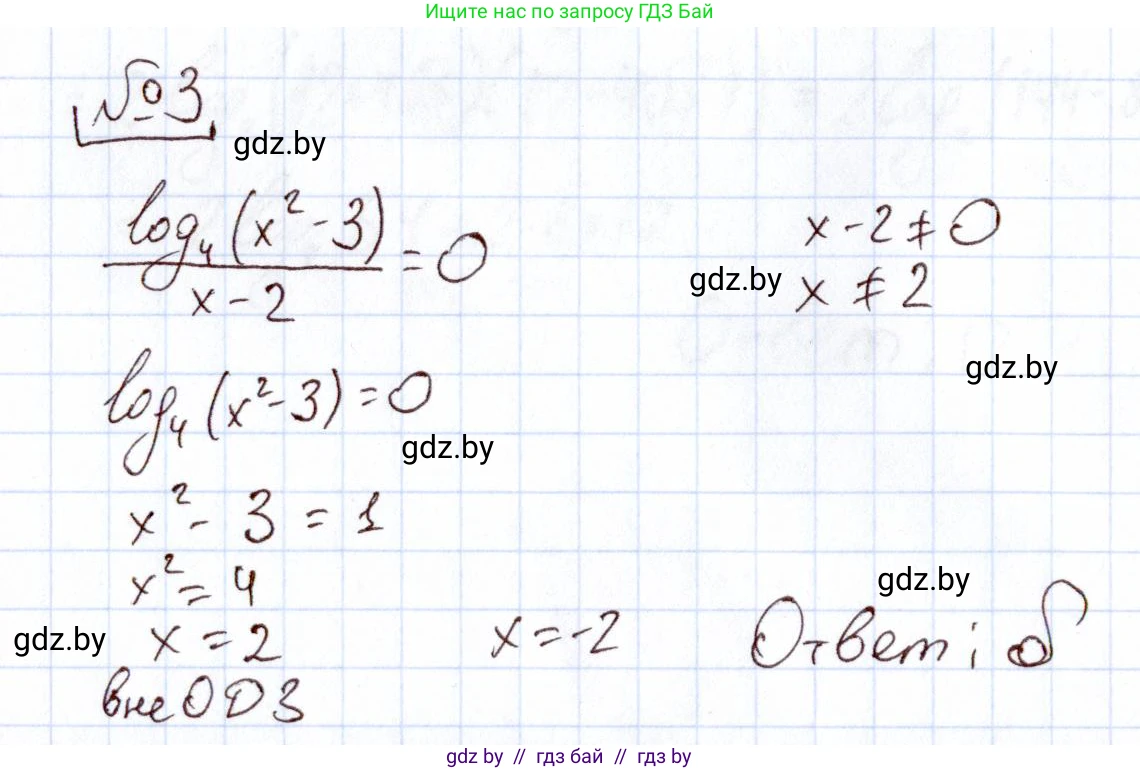 Ищите нас по запросу ГДЗ Бай
№3
gdz.by
log₄(x² - 3)
x - 2
= 0
x - 2 ≠ 0
gdz.by
x ≠ 2
gdz.by
log₄(x² - 3) = 0
gdz.by
x² - 3 = 1
x² = 4
gdz.by
gdz.by
x = 2
x = -2
Ответ: б
вне ОДЗ
gdz.by // гдз бай // гдз by